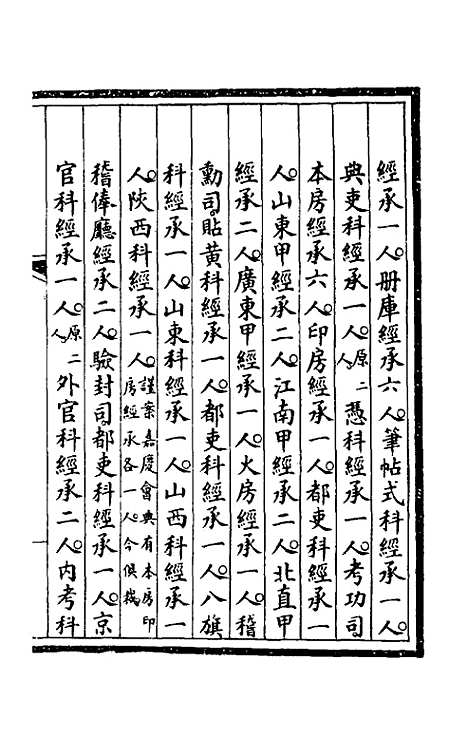 經承一人。册庫經承六人。筆帖式科經承一人。
典吏科經承一人。原二人。憑科經承一人。考功司。
本房經承六人。印房經承一人。都吏科經承一
人。山東甲經承二人。江南甲經承二人。北直甲
經承二人。廣東甲經承一人。火房經承一人。稽
勳司。貼黃科經承一人。都吏科經承一人。八旗
科經承一人。山東科經承一人。山西科經承一
人。陝西科經承一人。謹案嘉慶會典有本房印房經承各一人。今俱裁。
稽俸廳經承二人。驗封司。都吏科經承一人。京
官科經承一人。原二人。外官科經承二人。內考科